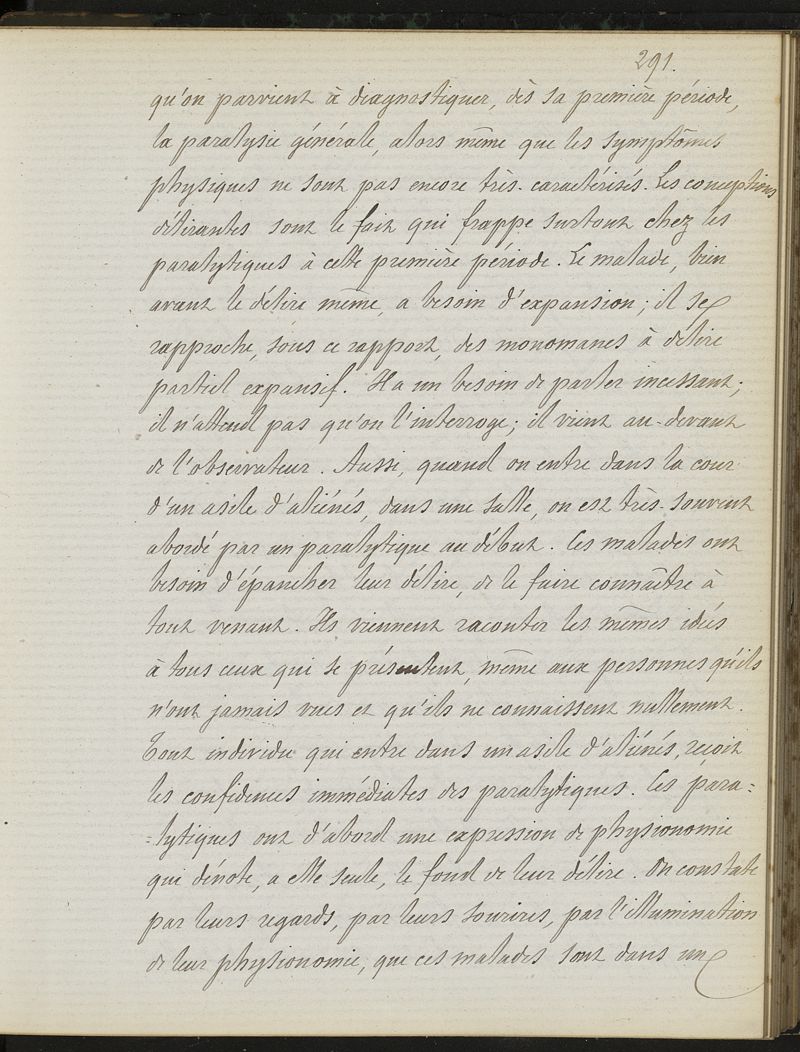 291.
qu'on parvient à diagnostiquer, dès sa première période,
la paralysie générale, alors même que les symptômes
physiques ne sont pas encore très-caractérisés. Les conceptions
délirantes sont le fait qui frappe surtout chez les
paralytiques à cette première période. Le malade, bien
avant le délire même, a besoin d'expansion; il se
rapproche, sous ce rapport, des monomanes à délire
partiel expansif. Il a un besoin de parler incessant;
il n'attend pas qu'on l'interroge; il vient au-devant
de l'observateur. Aussi, quand on entre dans la cour
d'un asile d'aliénés, dans une salle, on est très-souvent
abordé par un paralytique au début. Ces malades ont
besoin d'épancher leur délire, de le faire connaître à
tout venant. Ils viennent raconter les mêmes idées
à tous ceux qui se présentent, même aux personnes qu'ils
n'ont jamais vues et qu'ils ne connaissent nullement.
Tout individu qui entre dans un asile d'aliénés, reçoit
les confidences immédiates des paralytiques. Ces para=
=lytiques ont d'abord une expression de physionomie
qui dénote, a elle seule, le fond de leur délire. On constate
par leurs regards, par leurs sourires, par l'illumination
de leur physionomie, que ces malades sont dans un